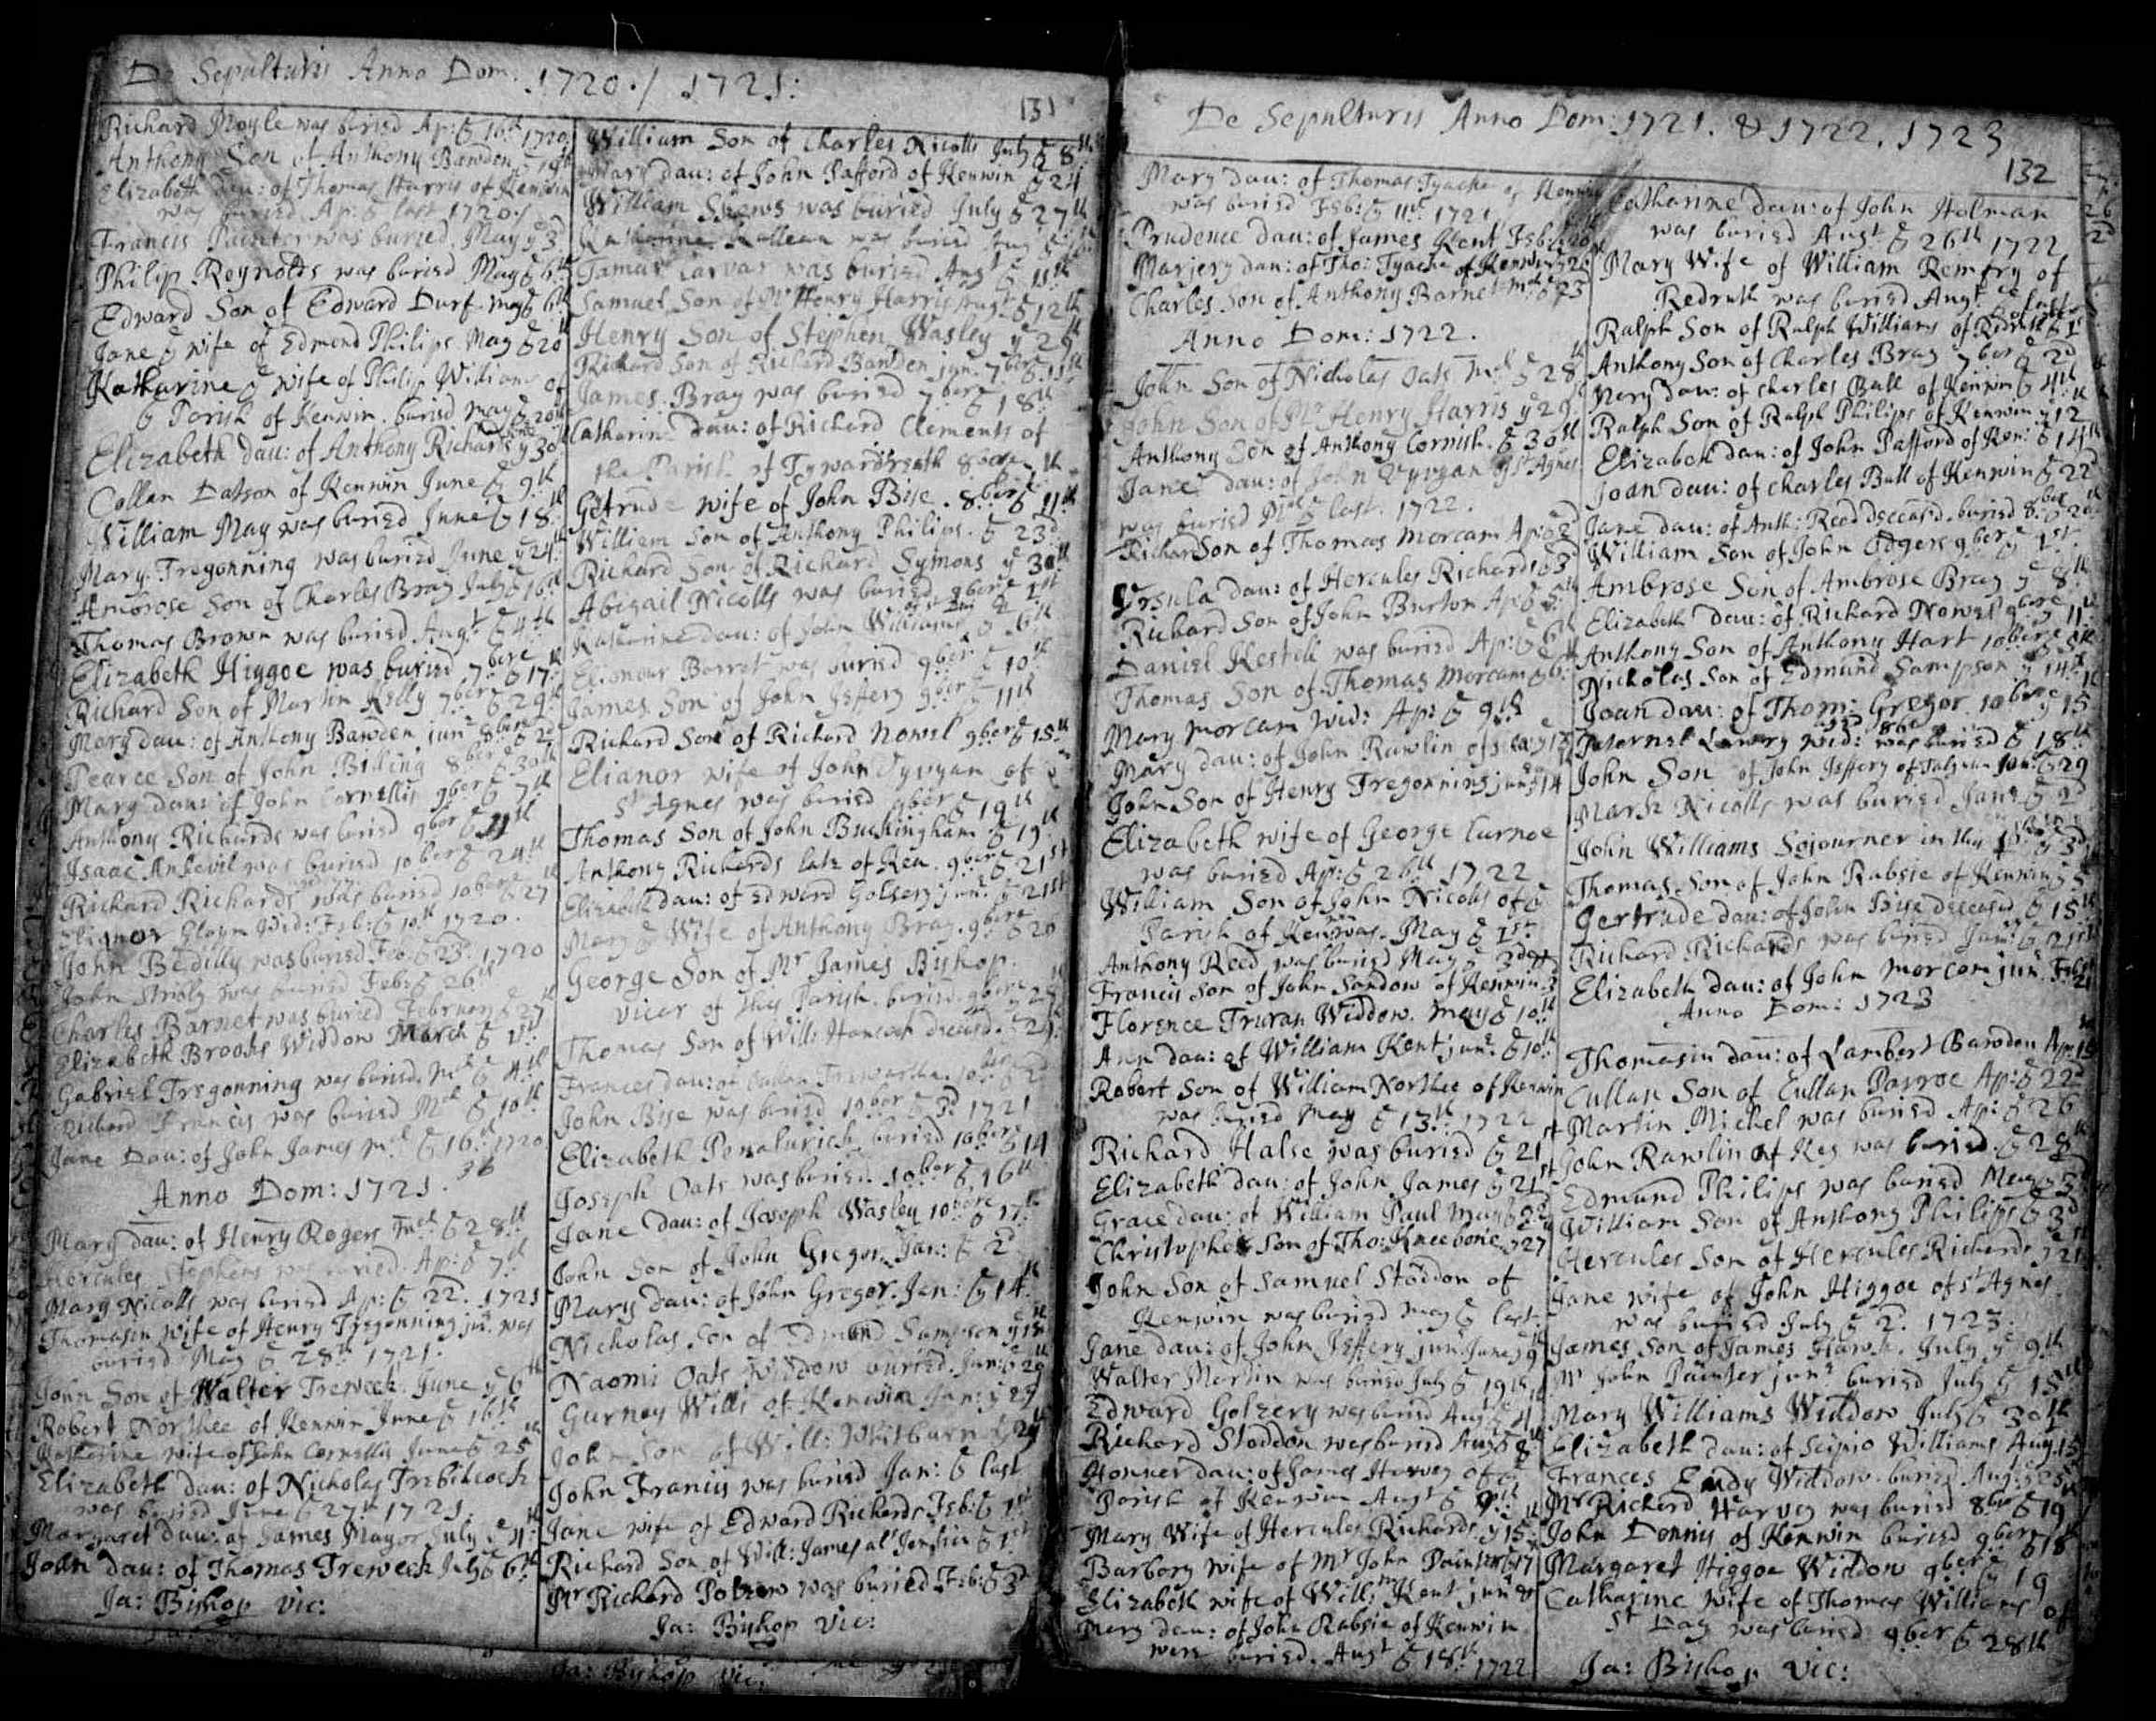 De Sepulturis Anno Dom: 1720 / 1721:
131
Richard Moyle was buried Ap: ye 16th 1720
Anthony Son of Anthony Bawden ye 19th
Elizabeth dau: of Thomas Harris of Kenwin
was buried Ap: ye last 1720
Francis Painter was buried May ye 3d
Philip Reynolds was buried May ye 6th
Edward Son of Edward Durf May ye 6th
Jane ye wife of Edmond Philips May ye 20th
Katharine ye wife of Philip Williams of
ye Parish of Kenwin buried May ye 20th
Elizabeth dau: of Anthony Richards ye 30th
Collan Datson of Kenwin June ye 9th
William May was buried June ye 18th
Mary Tregonning was buried June ye 24th
Ambrose Son of Charles Bray July ye 16th
Thomas Brown was buried Augt ye 4th
Elizabeth Higgoe was buried 7ber ye 17th
Richard Son of Martin Kelly 7ber ye 29th
Mary dau: of Anthony Bawden junr 8ber ye 2d
Pearce Son of John Billing 8ber ye 30th
Mary dau: of John Cornellis 9ber ye 7th
Anthony Richards was buried 9ber ye 11th
Isaac Andevil was buried 10ber ye 24th
Richard Richards was buried 10ber ye 27th
Elianor Gloyn Wid: Feb: ye 10th 1720
John Bedilly was buried Feb: ye 23d 1720
John Stribly was buried Feb: ye 26th
Charles Barnet was buried February ye 27th
Elizabeth Brooks Widdow March ye 1st
Gabriel Tregonning was buried Mch ye 4th
Richard Francis was buried Mch ye 10th
Jane Dau: of John James Mch ye 16th 1720
36
Anno Dom: 1721
Mary dau: of Henry Rogers ye 28th
Hercules Stephens was buried Ap: ye 7th
Mary Nicolls was buried Ap: ye 22 1721
Thomasin wife of Henry Tregonning junr was
buried May ye 28th 1721
John Son of Walter Treweek June ye 6th
Robert Northee of Kenwin June ye 16th
Katharine wife of John Cornellis June ye 25th
Elizabeth dau: of Nicholas Trebilcock
was buried June ye 27th 1721
Margaret dau: of James Mayor July ye 4th
Joan dau: of Thomas Treweek July ye 6th
Ja: Bishop Vic:
William Son of Charles Nicolls July ye 8th
Mary dau: of John Pafford of Kenwin ye 24
William Skews was buried July ye 27th
Katharine was buried Augt
Tamar Carvar was buried Augt ye 11th
Samuel Son of Mr Henry Harris Augt ye 12th
Henry Son of Stephen Wasley ye 29th
Richard Son of Richard Bawden jun 7ber ye 11th
James Bray was buried 7ber ye 18th
Catharine dau: of Richard Clements of
the Parish of Tywardreath 8ber
Getrude wife of John Bise 8ber ye 11th
William Son of Anthony Philips ye 23d
Richard Son of Richard Symons ye 30th
Abigail Nicolls was buried 9ber ye 1st
Katharine dau: of John Williams ye 6th
Elionour Barret was buried 9ber ye 10th
James Son of John Jeffery 9ber ye 11th
Richard Son of Richard Nowel 9ber ye 15th
Elianor wife of John Vyvyan of
St Agnes was buried 9ber ye 19th
Thomas Son of John Buckingham ye 19th
Anthony Richards late of Kea 9ber ye 21st
Elizabeth dau: of Edward Golsery junr ye 21st
Mary ye Wife of Anthony Bray 9ber ye 26
George Son of Mr James Bishop
Vicar of this Parish buried 9ber ye 27
Thomas Son of Will: Hancock deceased ye 29th
Frances dau: of Collan Trewartha 10ber ye 2d
John Bise was buried 10ber ye 3d 1721
Elizabeth Penalurick buried 10ber ye 14
Joseph Oats was buried 10ber ye 16th
Jane dau: of Joseph Wasley 10ber ye 17th
John Son of John Gregor Jan: ye 2d
Mary dau: of John Gregor Jan: ye 14th
Nicholas Son of Edmund Sampson ye 18th
Naomi Oats Widdow buried Jan: ye 29th
Gurney Wills of Kenwin Jan: ye 29
John Son of Will: Whitburn ye 29th
John Francis was buried Jan: ye last
Jane wife of Edward Richards Feb: ye 1st
Richard Son of Will: James als Jenkin ye 1st
Mr Richard Polrew was buried Feb: ye 3d
Ja: Bishop Vic:
Ja: Bishop Vic:
De Sepulturis Anno Dom: 1721. & 1722. 1723
132
Mary dau: of Thomas Tyacke of Kenwin
was buried Feb: ye 11th 1721
Prudence dau: of James Kent Feb: ye 20
Marjery dau: of Tho: Tyacke of Kenwin ye 20
Charles Son of Anthony Barnet Mch ye 23
Anno Dom: 1722.
John Son of Nicholas Oats Mch ye 28th
John Son of Mr Henry Harris ye 29
Anthony Son of Anthony Cornish ye 30th
Jane dau: of John Vyvyan of St Agnes
was buried ye last 1722.
Richard Son of Thomas Morcam Ap: ye 2d
Ursula dau: of Hercules Richards ye 3d
Richard Son of John Burton Ap: ye 5th
Daniel Kestell was buried Ap: ye 6th
Thomas Son of Thomas Morcam ye 6th
Mary Morcam Wid: Ap: ye 9th
Mary dau: of John Rawlin of Kea ye 13
John Son of Henry Tregonning junr ye 14
Elizabeth wife of George Curnoe
was buried Ap: ye 26th 1722
William Son of John Nicolls of ye
Parish of Kenwin was May ye 1st
Anthony Reed was buried May ye 3d
Francis Son of John Sandow of Kenwin 3
Florence Truran Widdow May ye 10th
Ann dau: of William Kent junr ye 10th
Robert Son of William Northee of Kenwin
was buried May ye 13th 1722
Richard Halse was buried ye 21st
Elizabeth dau: of John James ye 21st
Grace dau: of William Paul May ye 22d
Christopher Son of Tho: Kneebone ye 27
John Son of Samuel Stoddon of
Kenwin was buried May ye last
Jane dau: of John Jeffery jun June ye 9th
Walter Martin was buried July ye 19th
Edward Golzery was buried Aug ye 4th
Richard Stoddon was buried Aug ye 8th
Honner dau: of James Harvey of ye
Parish of Kenwin Augt ye 9th
Mary Wife of Hercules Richards ye 15th
Barbery wife of Mr John Painter ye 17
Elizabeth wife of Willm Kent junr &
Mary dau: of John Rabsie of Kenwin
were buried Augt ye 18th 1722
Catharine dau: of John Holman
was buried Augt ye 26th 1722
Mary Wife of William Remfry of
Redruth was buried Augt ye last
Ralph Son of Ralph Williams of Redruth ye 1st
Anthony Son of Charles Bray 7ber ye 2d
Mary dau: of Charles Ball of Kenwin ye 4th
Ralph Son of Ralph Philips of Kenwin ye 12th
Elizabeth dau: of John Pafford of Ken: ye 14th
Joan dau: of Charles Ball of Kenwin ye 22d
Jane dau: of Anth: Reed deceased buried 8ber ye 20th
William Son of John Odgers 9ber ye 1st
Ambrose Son of Ambrose Bray ye 8th
Elizabeth dau: of Richard Nowel 9ber ye 11th
Anthony Son of Anthony Hart 10ber ye 8th
Nicholas Son of Edmund Sampson ye 14th
Joan dau: of Thom: Gregor 10ber ye 15
Lavery Wid: was buried ye 18th
John Son of John Jeffery ye 29
Mark Nicolls was buried Jan: ye 2d
John Williams Sojourner in this ye 3d
Thomas Son of John Rabsie of Kenwin ye 5th
Gertrude dau: of John Bise deceased ye 15th
Richard Richards was buried Jan: ye 21st
Elizabeth dau: of John Morcom junr Feb 21
Anno Dom: 1723
Thomasin dau: of Lambert Bawden Ap: 15
Cullan Son of Cullan Parroe Ap: ye 22d
Martin Michel was buried Ap: ye 26
John Rawlin of Kea was buried ye 28th
Edmund Philips was buried May ye 3d
William Son of Anthony Philips ye 3d
Hercules Son of Hercules Richards ye 21st
Jane wife of John Higgoe of St Agnes
was buried July ye 2d 1723
James Son of James Hawk July ye 9th
Mr John Painter junr buried July ye 15th
Mary Williams Widdow July ye 30th
Elizabeth dau: of Scipio Williams Aug 15
Frances Eudy Widdow buried Aug: ye 25th
Mr Richard Harvey was buried 8ber ye 19th
John Dennis of Kenwin buried 9ber ye 18th
Margaret Higgoe Widdow 9ber ye 19
Catharine Wife of Thomas Williams of
St Day was buried 9ber ye 28th
Ja: Bishop Vic: